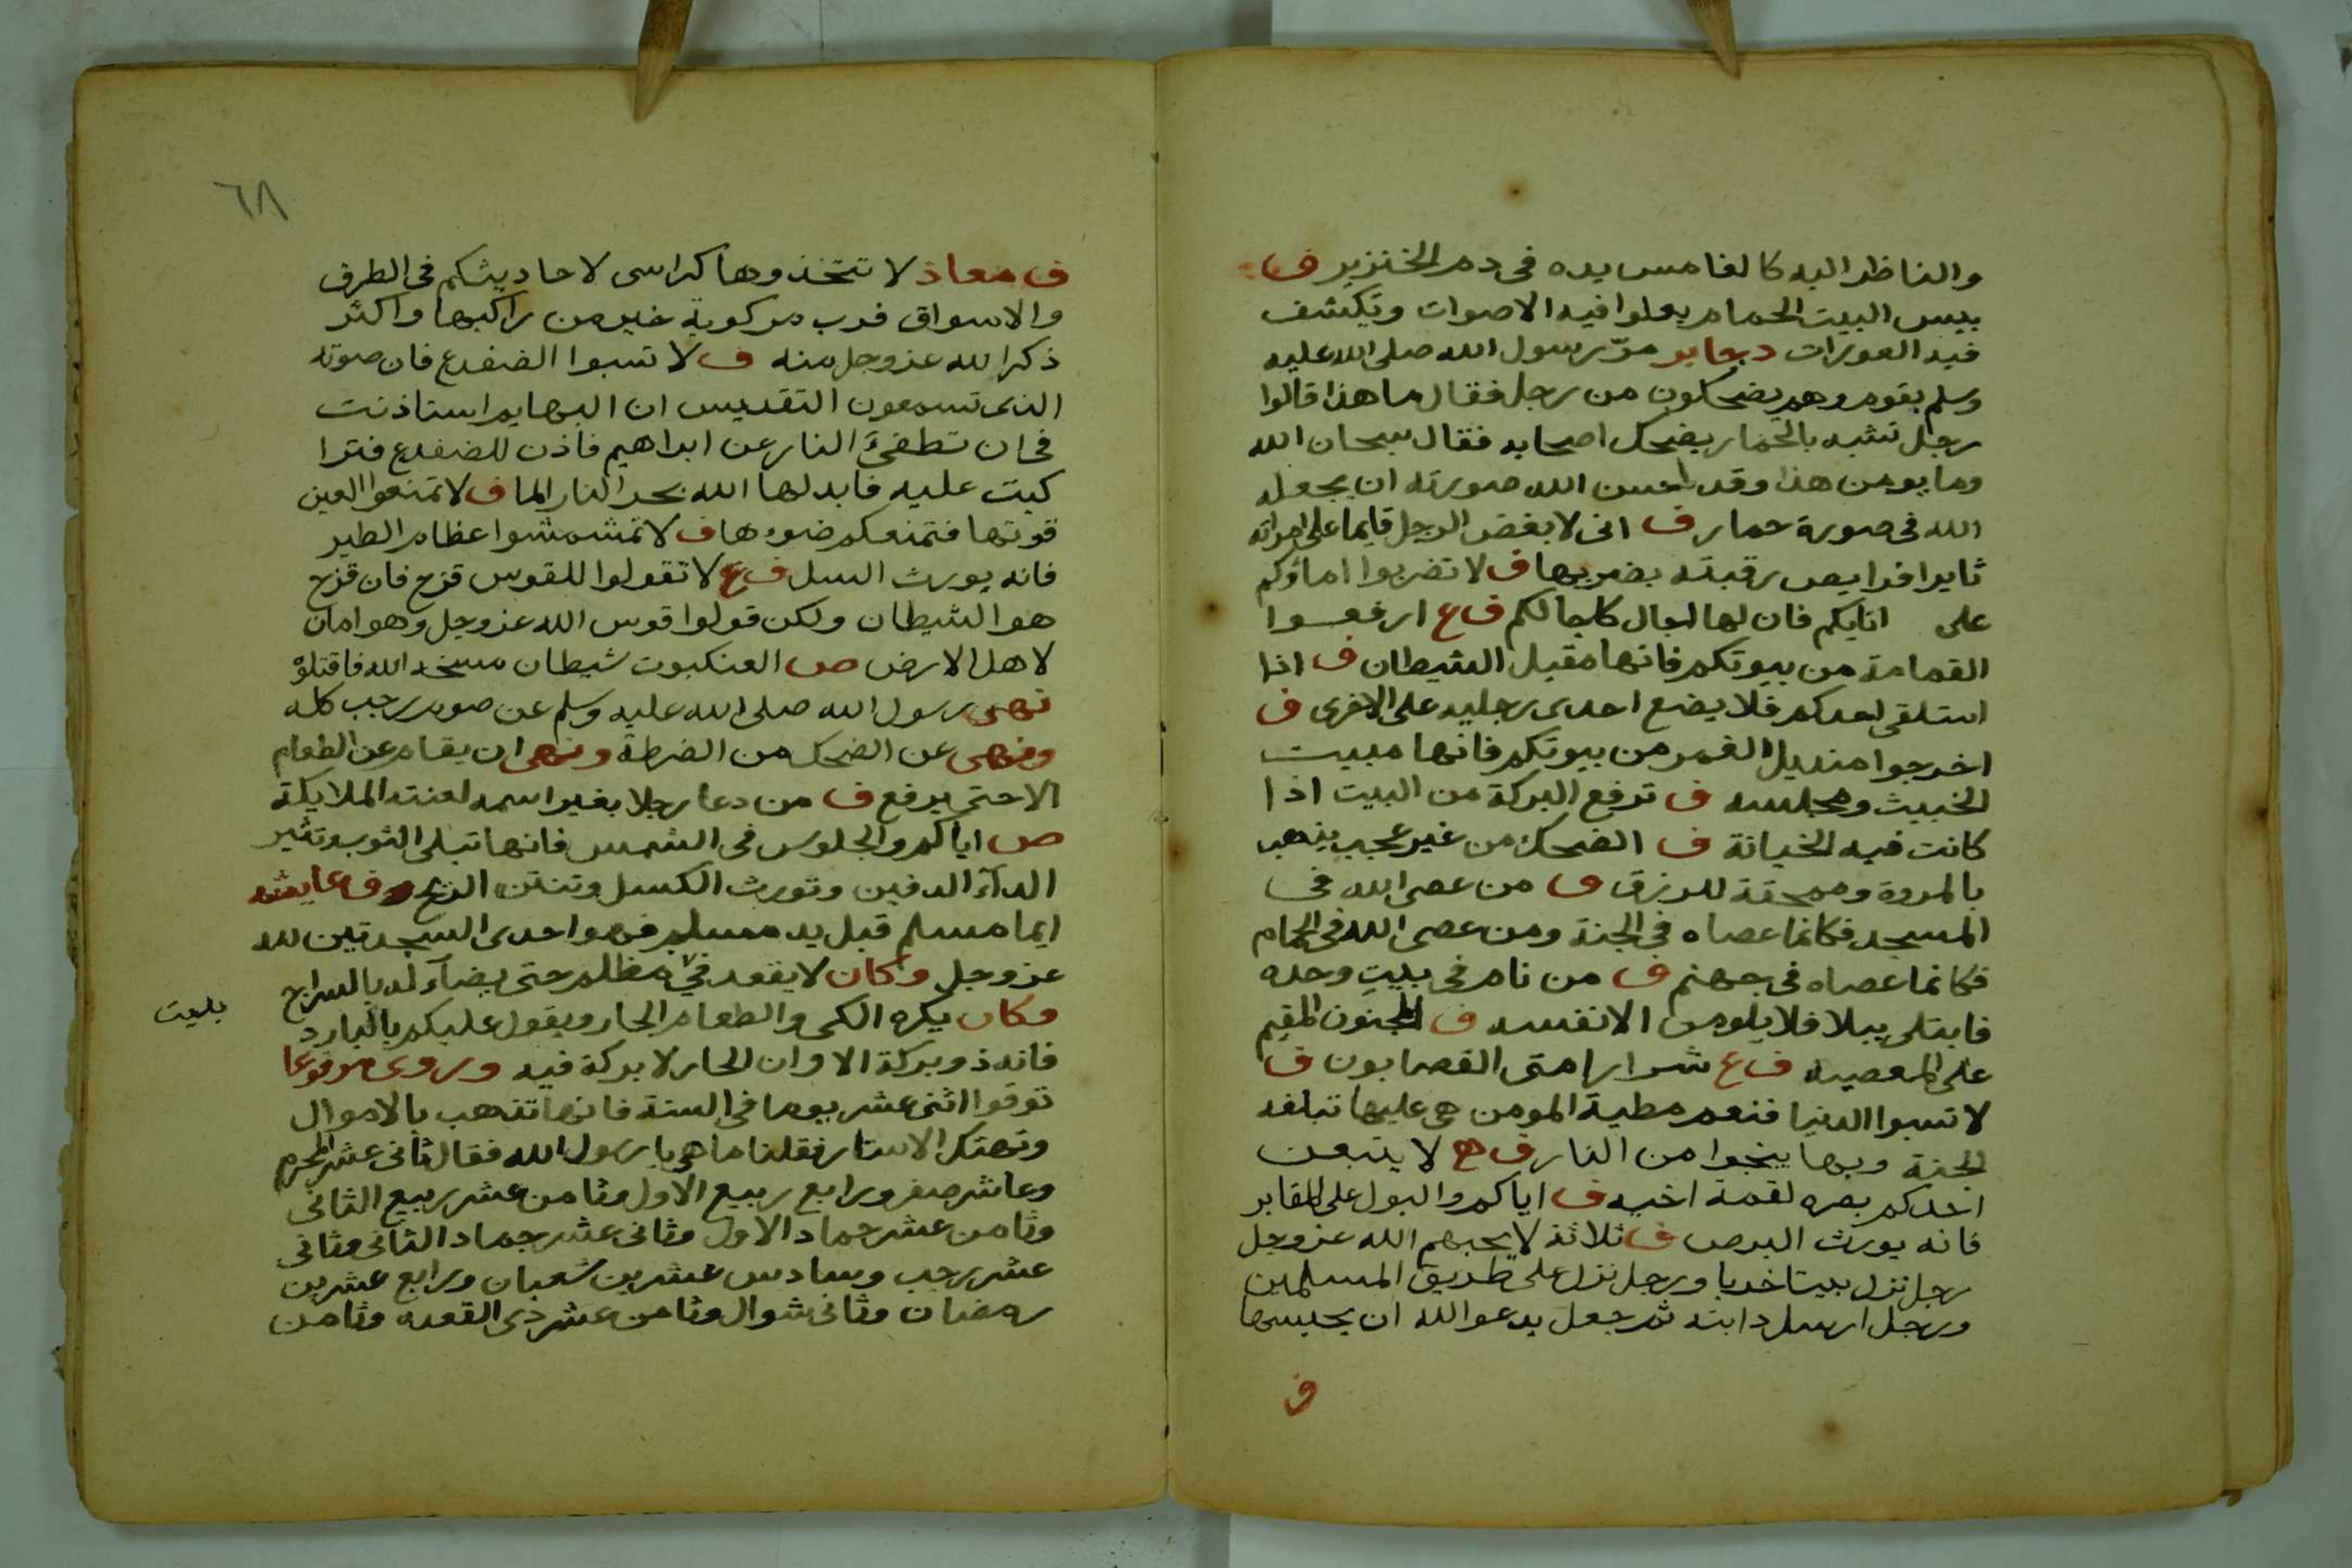 والناظر اليه كالغامس يده فى دم الخنزير ف
بيس البيت الحمام يعلوا فيه الاصوات وتكشف
فيه العورات د بجابر مرّ رسول الله صلى الله عليه
وسلم بقوم وهم يضحكون من رجل فقال ما هذا قالوا
رجل تشبه بالحمار يضحك اصحابه فقال سبحان الله
وما يومن هذا وقد احسن الله صورته ان يجعله
الله فى صورة حمار ف انى لابغض الرجل قايما على امراته
ثايرا فرايص رقبته يضربها ف لا تضربوا اماؤكم
على انايكم فان لها اجال كاجالكم ف ع ارفعوا
القمامة من بيوتكم فانها مقيل الشيطان ف اذا
استلقى احدكم فلا يضع احدى رجليه على الاخرى ف
اخرجوا منديل الغمر من بيوتكم فانها مبيت
الخبيث ومجلسه ف ترفع البركة من البيت اذا
كانت فيه الخيانة ف الضحك من غير عجب يذهب
بالمروة وممحقة للرزق ف من عصى الله فى
المسجد فكانما عصاه فى الجنة ومن عصى الله فى الحمام
فكانما عصاه فى جهنم ف من نام فى بيت وحده
فابتلى ببلا فلا يلومن الا نفسه ف المجنون المقيم
على المعصيه ف ع شرار امتى القصابون ف
لا تسبوا الدنيا فنعم مطية المومن هى عليها تبلغه
الجنة وبها ينجوا من النار ف ح لا يتبعن
احدكم بصره لقمة اخيه ف اياكم والبول على المقابر
فانه يورث البرص ف ثلاثة لا يحبهم الله عز وجل
رجل نزل بيتا خربا ورجل نزل على طريق المسلمين
ورجل ارسل دابته ثم جعل يدعو الله ان يحبسها
ف
٦٨
ف معاذ لا تتخذوها كراسى لاحاديثكم فى الطرق
والاسواق فرب مركوبة خير من راكبها واكثر
ذكرا لله عز وجل منه ف لا تسبوا الضفدع فان صوته
الذى تسمعون التقديس ان البهايم استاذنت
فى ان تطفئ النار عن ابراهيم فاذن للضفدع فترا
كبت عليه فابدلها الله بحر النار الما ف لا تمنعوا العين
قوتها فتمنعكم ضوءها ف لا تمشمشوا عظام الطير
فانه يورث السل ف ع لا تقولوا للقوس قزح فان قزح
هو الشيطان ولكن قولوا قوس الله عز وجل وهو امان
لاهل الارض ص العنكبوت شيطان مسخه الله فاقتلوه
نهى رسول الله صلى الله عليه وسلم عن صوم رجب كله
ونهى عن الضحك من الضرطة ونهى ان يقام عن الطعام
الا حتى يرفع ف من دعا رجلا بغير اسمه لعنته الملايكة
ص اياكم والجلوس فى الشمس فانها تبلى الثوب وتثير
الداء الدفين وتورث الكسل وتنتن الريح ف عايشه
ايما مسلم قبل يد مسلم فهو احدى السجدتين لله
عز وجل وكان لا يقعد فى مظلم حتى يضاء له بالسراج
بليت
وكان يكره الكى والطعام الحار ويقول عليكم بالبارد
فانه ذو بركة الا وان الحار لا بركة فيه وروى مرفوعا
توقوا اثنى عشر يوما فى السنة فانها تذهب بالاموال
وتهتك الاستار فقلنا ما هى يا رسول الله فقال ثانى عشر المحرم
وعاشر صفر ورابع ربيع الاول وثامن عشر ربيع الثانى
وثامن عشر جماد الاول وثانى عشر جماد الثانى وثانى
عشر رجب وسادس عشرين شعبان ورابع عشرين
رمضان وثانى شوال وثامن عشر ذى القعده وثامن